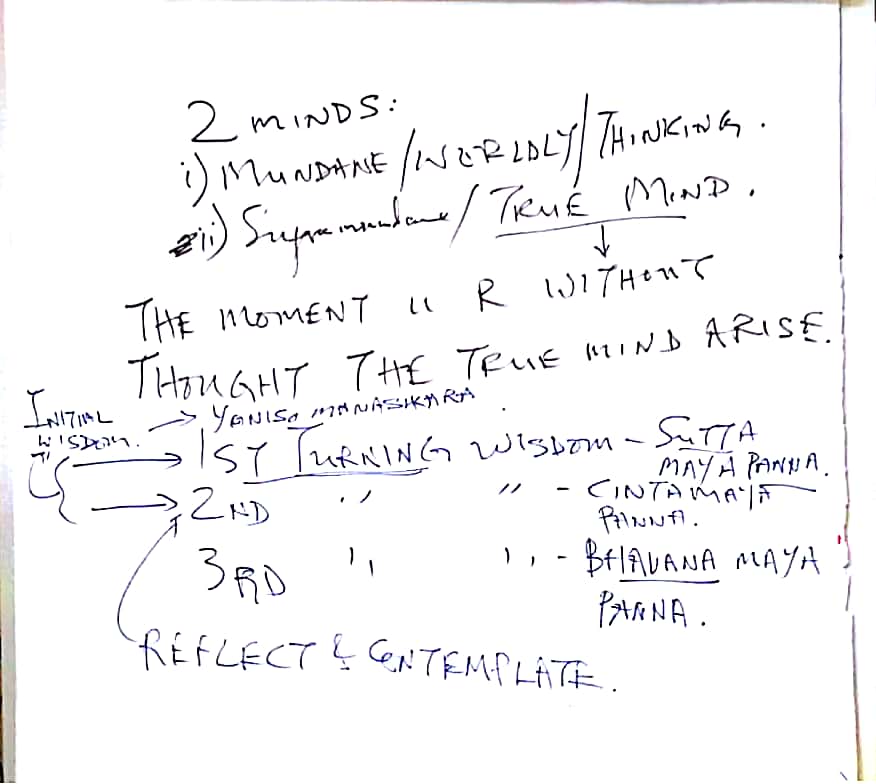 2 MINDS:
i) MUNDANE/WORLDLY/THINKING.
ii) Supramundane/TRUE MIND.
THE MOMENT U R WITHOUT
THOUGHT THE TRUE MIND ARISE.
INITIAL WISDOM. → YONISO MANASIKARA
1ST TURNING WISDOM - SUTTA
MAYA PANNA.
2ND " " - CINTA MAYA
PANNA.
3RD " " - BHAVANA MAYA
PANNA.
REFLECT & CONTEMPLATE.